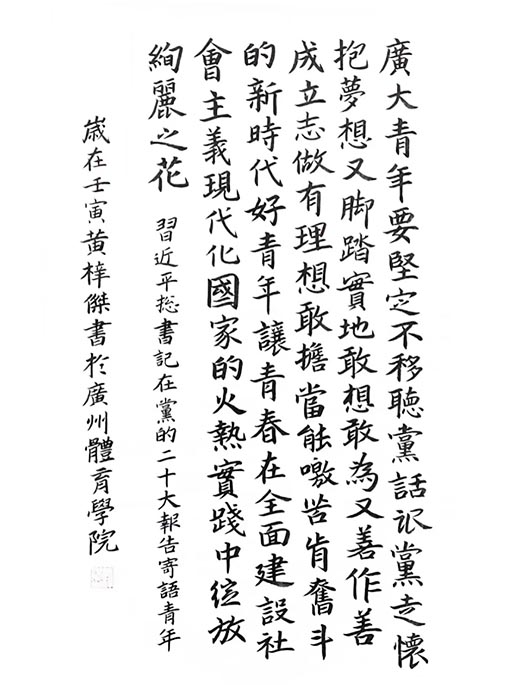 廣大青年要堅定不移聽黨話跟黨走懷
抱夢想又脚踏實地敢想敢為又善作善
成立志做有理想敢擔當能喫苦肯奮斗
的新時代好青年讓青春在全面建設社
會主義現代化國家的火熱實踐中綻放
絢麗之花 習近平総書記在黨的二十大報告寄語青年
歲在壬寅黄梓傑書於廣州體育學院